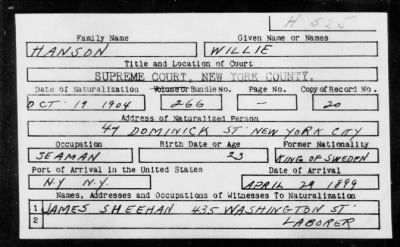 H 525
Family Name Given Name or Names
HANSON WILLIE
Title and Location of Court
SUPREME COURT, NEW YORK COUNTY.
Date of Naturalization Volume or Bundle No. Page No. Copy of Record No.
OCT. 19 1904 266 — 20
Address of Naturalized Person
47 DOMINICK ST. NEW YORK CITY
Occupation Birth Date or Age Former Nationality
SEAMAN 23 KING OF SWEDEN
Port of Arrival in the United States Date of Arrival
N.Y. N.Y. APRIL 29 1899
Names, Addresses and Occupations of Witnesses To Naturalization
1 JAMES SHEEHAN 435 WASHINGTON ST.
2 LABORER